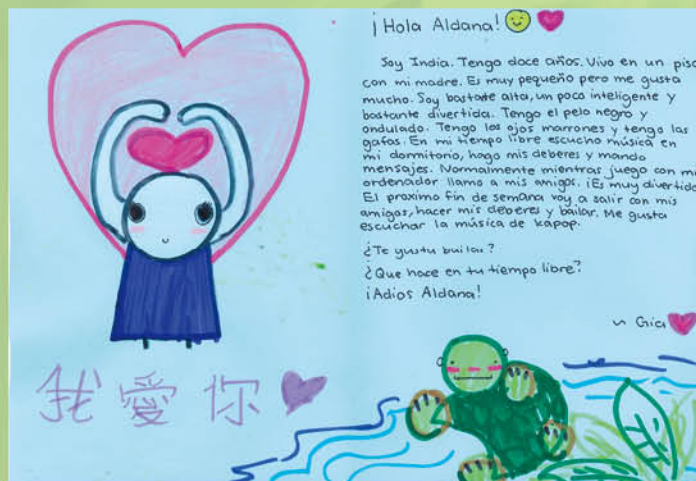 ¡Hola Aldana!
Soy India. Tengo doce años. Vivo en un piso
con mi madre. Es muy pequeño pero me gusta
mucho. Soy bastate alta, un poco inteligente y
bastante divertida. Tengo el pelo negro y
ondulado. Tengo los ojos marrones y tengo las
gafas. En mi tiempo libre escucho música en
mi dormitorio, hago mis deberes y mando
mensajes. Normalmente mientras juego con mi
ordenador llamo a mis amigos. ¡Es muy divertido
El proximo fin de semana voy a salir con mis
amigos, hacer mis deberes y bailar. Me gusta
escuchar la música de kapop.
¿Te gusta builar?
¿Que hace en tu tiempo libre?
¡Adios Aldana!
~ Gia
我愛你